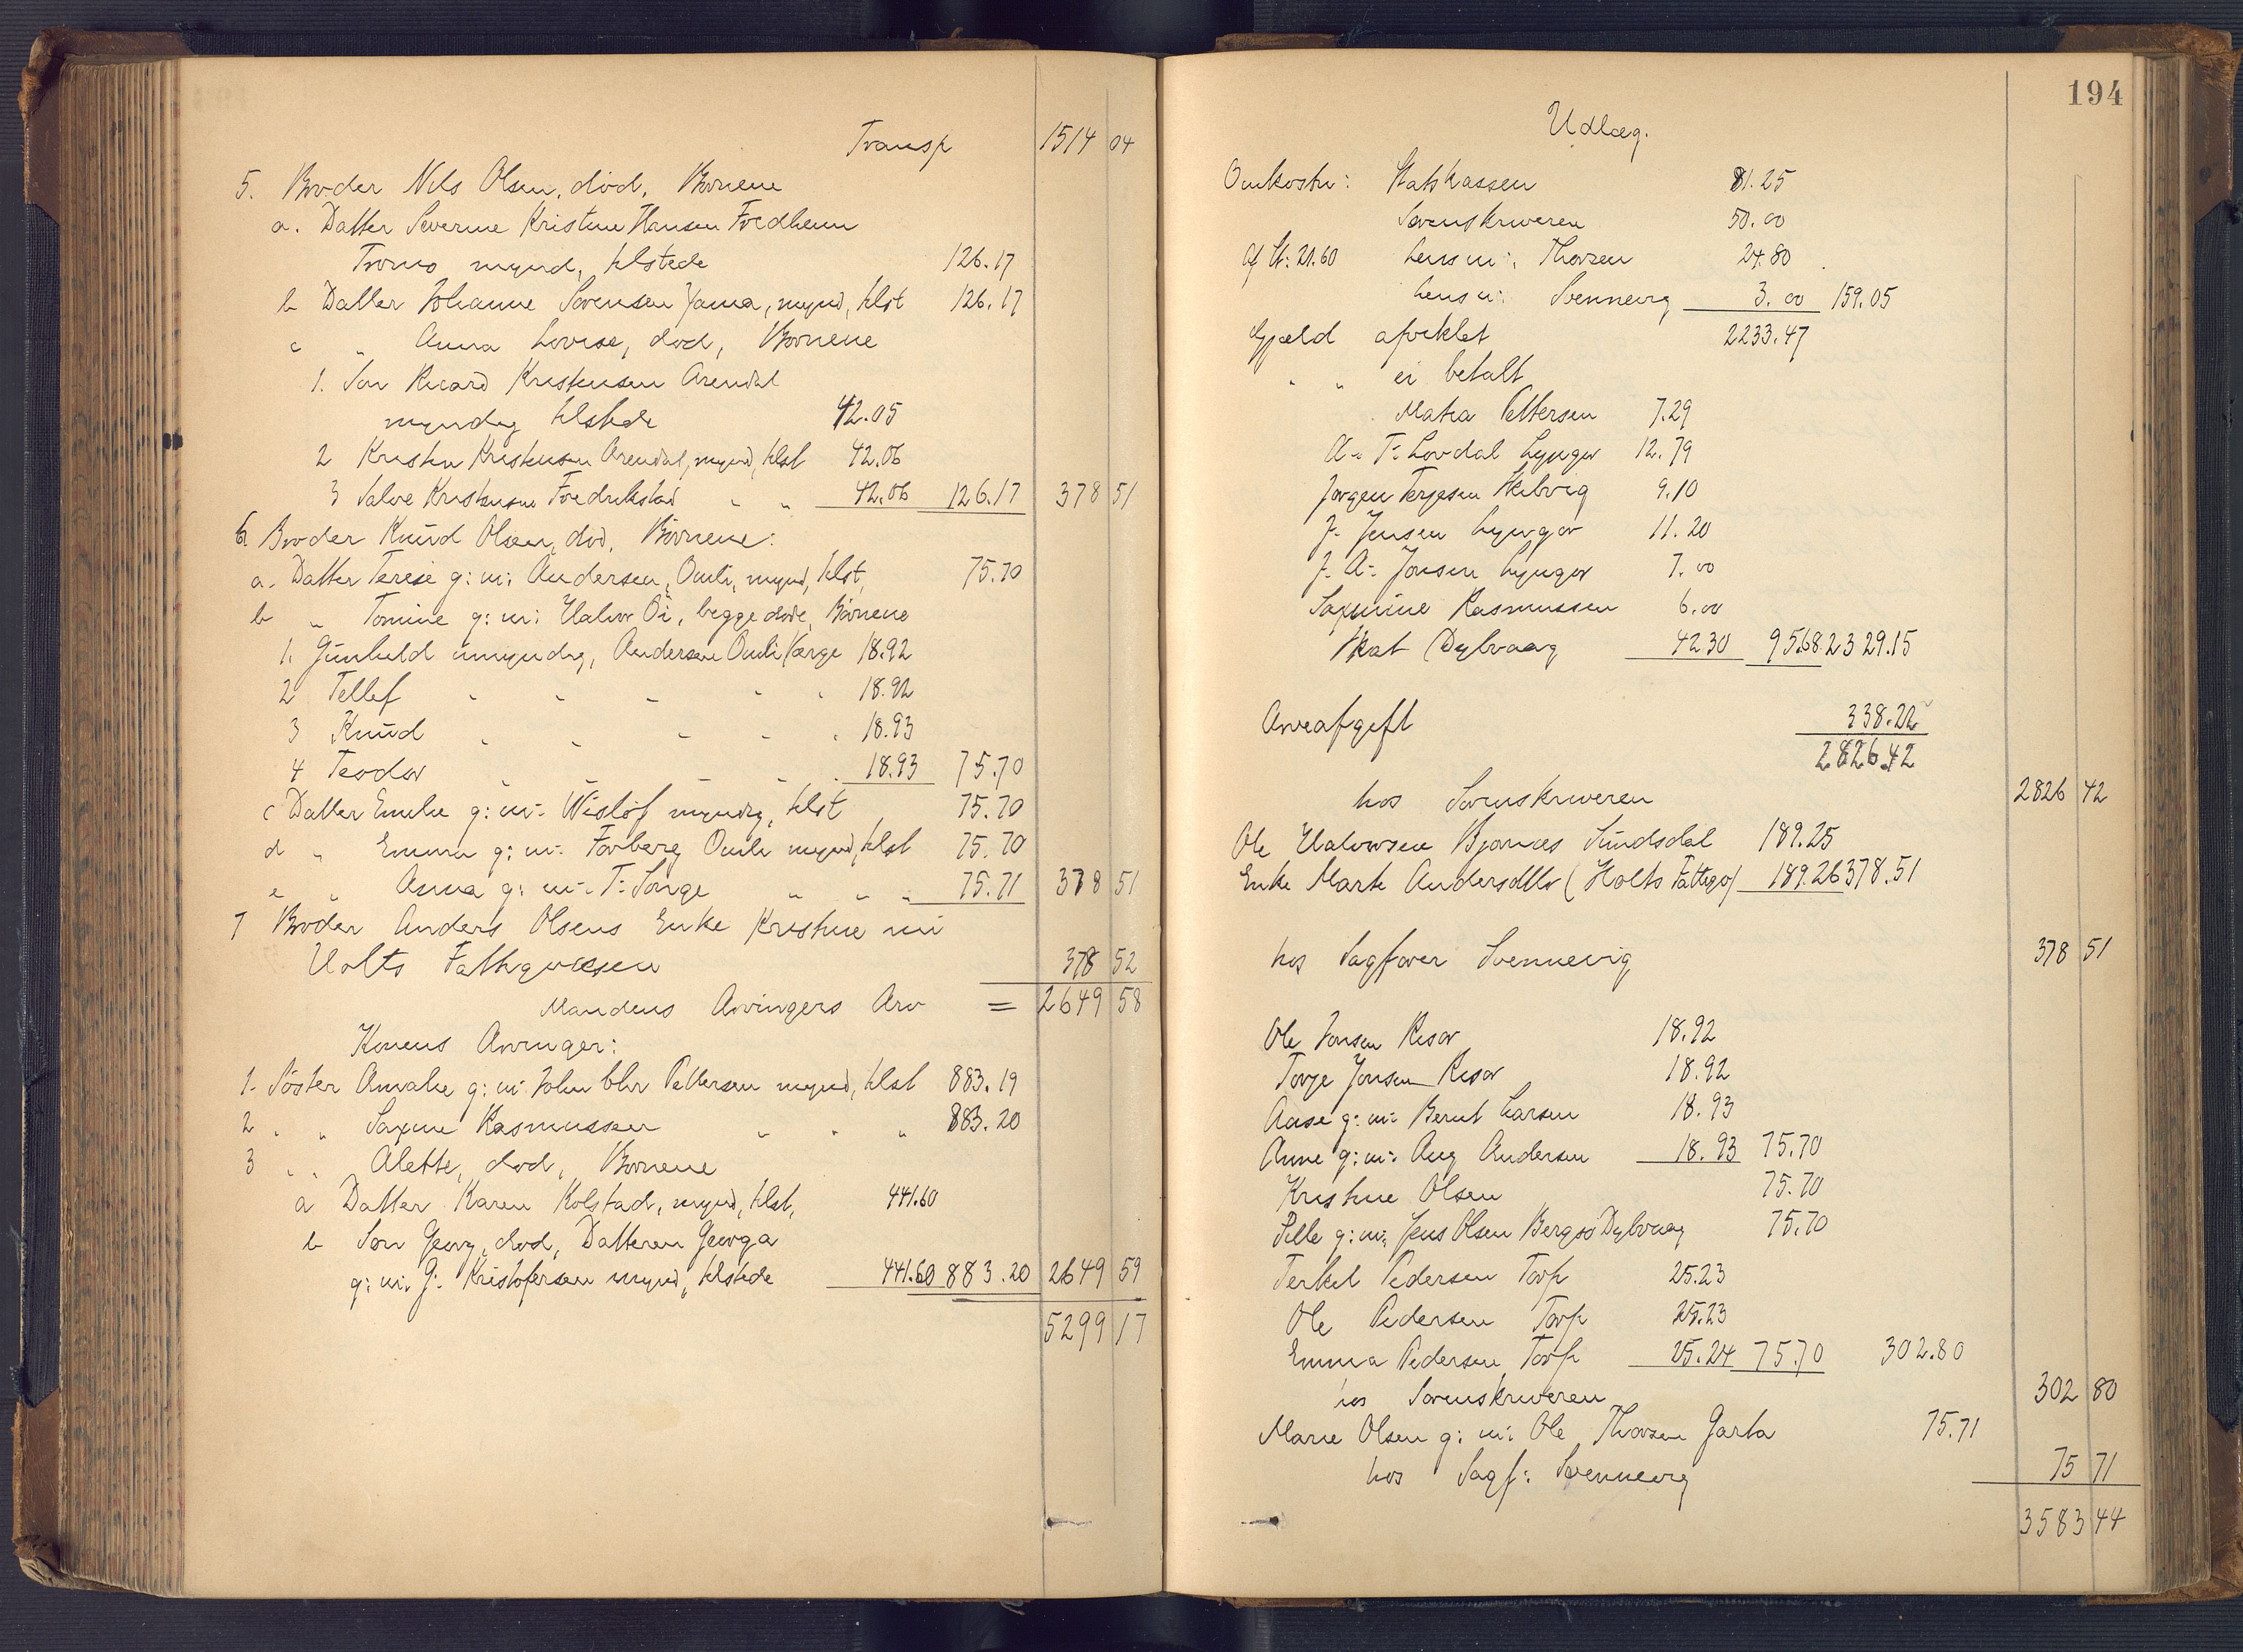 Transp 1514 04
5. Broder Nils Olsen, död, Börnene
a. Datter Severine Kristine Hansen Fredheim
Tromö mynd, tilstede 126.17
b Datter Johanne Sörensen, mynd, tilst 126.17
c " Anna Lovise, död, Börnene
1. Sön Ricard Kristensen Arendal
myndig tilstede 42.05
2 Kristen Kristensen Arendal, mynd, tilst 42.06
3 Salve Kristensen Fredrikstad " " 42.06 126.17 378 51
6. Broder Knud Olsen, död, Börnene:
a. Datter Terese g: m: Andersen, Omli, mynd, tilst, 75.70
b " Tomine g: m: Halvor Öi, begge döde, Börnene
1. Gunhild umyndig, Andersen Omli Værge 18.92
2 Tellef " " " " " 18.92
3 Knud " " " " " 18.93
4 Teodor " " " " " 18.93 75.70
c Datter Emilie g: m: Wislöf myndig, tilst 75.70
d " Emma g: m: Forberg Omli mynd, tilst 75.70
e " Anna g: m: T: Songe " " " 75.71 378 51
7 Broder Anders Olsens Enke Kristine ni
Holts Fattigvæsen 378 52
Mandens Arvingers Arv = 2649 58
Konens Arvinger:
1. Söster Amalie g: m: John Chr Pettersen mynd, tilst 883.19
2 " " Saxine Rasmussen " " " 883.20
3 " " Alette, död, Börnene
a Datter Karen Kolstad, mynd, tilst, 441.60
b Sön Georg, död, Datteren Georga
g: m: G: Kristofersen mynd, tilstede 441.60 883.20 2649 59
5299 17
194
Udlæg.
Omkostn: Statskassen 81.25
Sorenskriveren 50.00
Af St: 21.60 Lensm: Thorsen 24.80
Lensm: Svennevig 3.00 159.05
Gjæld afviklet 2233.47
" " ei betalt
Matea Pettersen 7.29
A. T: Lovdal Lyngör 12.79
Jörgen Terjesen Skibvig 9.10
J. Jensen Lyngör 11.20
J. A: Jensen Lyngör 7.00
Saxinine Rasmussen 6.00
Skat (Dybvaag 42 30 95.68 2329.15
Arveafgift 338.22
2826.42
hos Sorenskriveren 2826 42
Ole Halvorsen Bjornes Sundsdal 189.25
Enke Marte Andersdtr (Holts Fattigv) 189.26 378.51
hos Sagförer Svennevig 378 51
Ole Jonsen Risör 18.92
Torge Jonsen Risör 18.92
Aase g: m: Bernt Larsen 18.93
Anne g: m: Aug Andersen 18.93 75.70
Kristine Olsen 75.70
Pille g: m: Jens Olsen Bergsö Dybvaag 75.70
Terkel Pedersen Torp 25.23
Ole Pedersen Torp 25.23
Emma Pedersen Torp 25.24 75.70 302.80
hos Sorenskriveren 302 80
Marie Olsen g: m: Ole Thorsen Garta 75.71
hos Sagf: Svennevig 75 71
3583 44